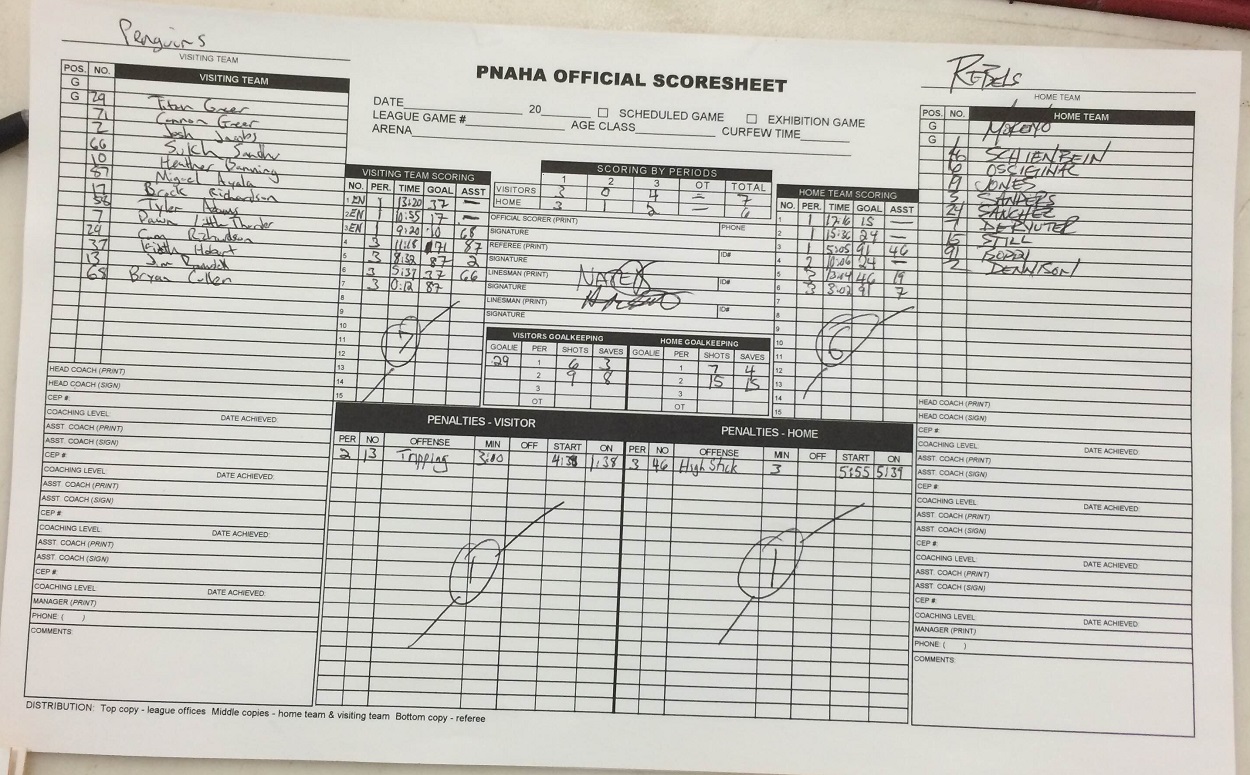 Penguins
VISITING TEAM
POS. NO. VISITING TEAM
G
G 29 Titan Greer
Connor Greer
2 Josh Jacobs
66 Sukh Sandhu
10 Heather Banning
87 Miguel Ayala
17 Brock Richardson
Tyler
7 Dawn Little
29 Richardson
37 Keith Hobart
13 Jim
68 Bryan Cullen
PNAHA OFFICIAL SCORESHEET
DATE 20 ☐ SCHEDULED GAME ☐ EXHIBITION GAME
LEAGUE GAME # AGE CLASS CURFEW TIME
ARENA
REBELS
HOME TEAM
POS. NO. HOME TEAM
G
G
SCHIENBEIN
6
JONES
SANDERS
24 SANCHEZ
7 DERUYTER
15 STILL
91 BOBBY
2 DENNISON
VISITING TEAM SCORING
NO. PER. TIME GOAL ASST
1 EN 1 13:20 37 —
2 EN 1 10:55 17 —
3 EN 1 9:20 10 68
4 3 11:18 71 87
5 3 8:32 87 2
6 3 5:37 37 66
7 3 0:12 87
8
9
10
11
12
13
14
15
7
SCORING BY PERIODS
1 2 3 OT TOTAL
VISITORS 3 0 4 — 7
HOME 3 1 2 — 6
OFFICIAL SCORER (PRINT) PHONE
SIGNATURE
REFEREE (PRINT) ID#
SIGNATURE
LINESMAN (PRINT) ID#
SIGNATURE
LINESMAN (PRINT) ID#
SIGNATURE
HOME TEAM SCORING
NO. PER. TIME GOAL ASST
1 1 15 —
2 1 15:36 24 —
3 1 5:05 91 46
4 2 10:06 24 —
5 3 13:04 46 19
6 3 3:02 91 7
7
8
9
10
11
12
13
14
15
6
VISITORS GOALKEEPING
GOALIE PER SHOTS SAVES
29 1 6 3
2 9 8
3
OT
HOME GOALKEEPING
GOALIE PER SHOTS SAVES
1 7 4
2 15 15
3
OT
PENALTIES - VISITOR
PER NO OFFENSE MIN OFF START ON
2 13 Tripping 3:00 4:38 1:38
1
PENALTIES - HOME
PER NO OFFENSE MIN OFF START ON
3 46 High Stick 3 5:55 5:39
1
HEAD COACH (PRINT)
HEAD COACH (SIGN)
CEP #:
COACHING LEVEL: DATE ACHIEVED:
ASST. COACH (PRINT)
ASST. COACH (SIGN)
CEP #:
COACHING LEVEL: DATE ACHIEVED:
ASST. COACH (PRINT)
ASST. COACH (SIGN)
CEP #:
COACHING LEVEL: DATE ACHIEVED:
ASST. COACH (PRINT)
ASST. COACH (SIGN)
CEP #:
COACHING LEVEL: DATE ACHIEVED:
MANAGER (PRINT)
PHONE: ( )
COMMENTS:
HEAD COACH (PRINT)
HEAD COACH (SIGN)
CEP #:
COACHING LEVEL: DATE ACHIEVED:
ASST. COACH (PRINT)
ASST. COACH (SIGN)
CEP #:
COACHING LEVEL: DATE ACHIEVED:
ASST. COACH (PRINT)
ASST. COACH (SIGN)
CEP #:
COACHING LEVEL: DATE ACHIEVED:
ASST. COACH (PRINT)
ASST. COACH (SIGN)
CEP #:
COACHING LEVEL: DATE ACHIEVED:
MANAGER (PRINT)
PHONE: ( )
COMMENTS:
DISTRIBUTION: Top copy - league offices Middle copies - home team & visiting team Bottom copy - referee